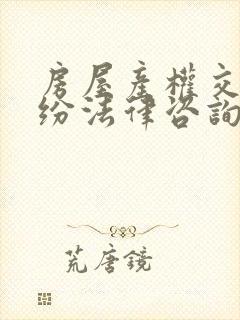 房屋產權交
紛法律咨詢
荒唐鏡